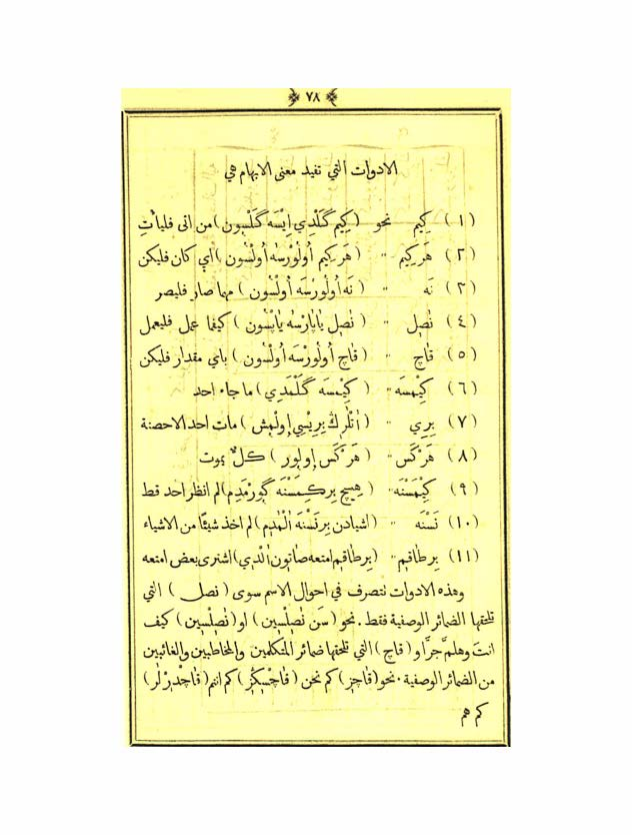 ٧٨
الادوات التي تفيد معنى الابهام هي
(١) كِيم نحو (كِيم گَلْدِي اِيْسَه گَلْسون) من اتى فليأتِ
(٢) هَرکِیم » (هَركِيم اُولُوْرسَه اُولْسُون) اي كان فليكن
(٣) نَه » (نَه اُولُورْسَه اُولْسُون) مهما صار فليصر
(٤) نَصِل » (نَصِل يَاپَارْسَه يَاپْسُون) كيفما عمل فليعمل
(٥) قَاچ » (قَاچ اُولُورْسَه اُولْسُون) باي مقدار فليكن
(٦) كِيْمسَه » (كِيْمسَه گَلْمَدِي) ما جاء احد
(٧) بِرِي » (اَتْلَرِڭ بِرِيْسِي اِولْمِش) مات احد الاحصنة
(٨) هَرْكَس » (هَرْكَس اِولور) كلٌ يموت
(٩) كِيْمَسْنَه » (هِيچ بِر كِيمَسْنَه گورْمَدِم) لم انظر احد قط
(١٠) نَسْنَه » (اشيادن بِر نَسْنَه اَلْمَدِم) لم اخذ شيئًا من الاشياء
(١١) بِر طاقِم » (بِر طاقِم امتعه صاتون اَلْدِي) اشترى بعض امتعه
وهذه الادوات تتصرف في احوال الاسم سوى (نصل) التي
تلحقها الضمائر الوصفية فقط. نحو (سَن نَصِلْسِين) او (نَصِلْسِين) كيف
انتَ وهلمَّ جرًّا و (قاچ) التي تلحقها ضمائر المتكلمين والمخاطبين والغائبين
من الضمائر الوصفية. نحو (قاچِز) كم نحن (قَاچْسِكِز) كم انتم (قَاچْدِرْلَر)
كم هم